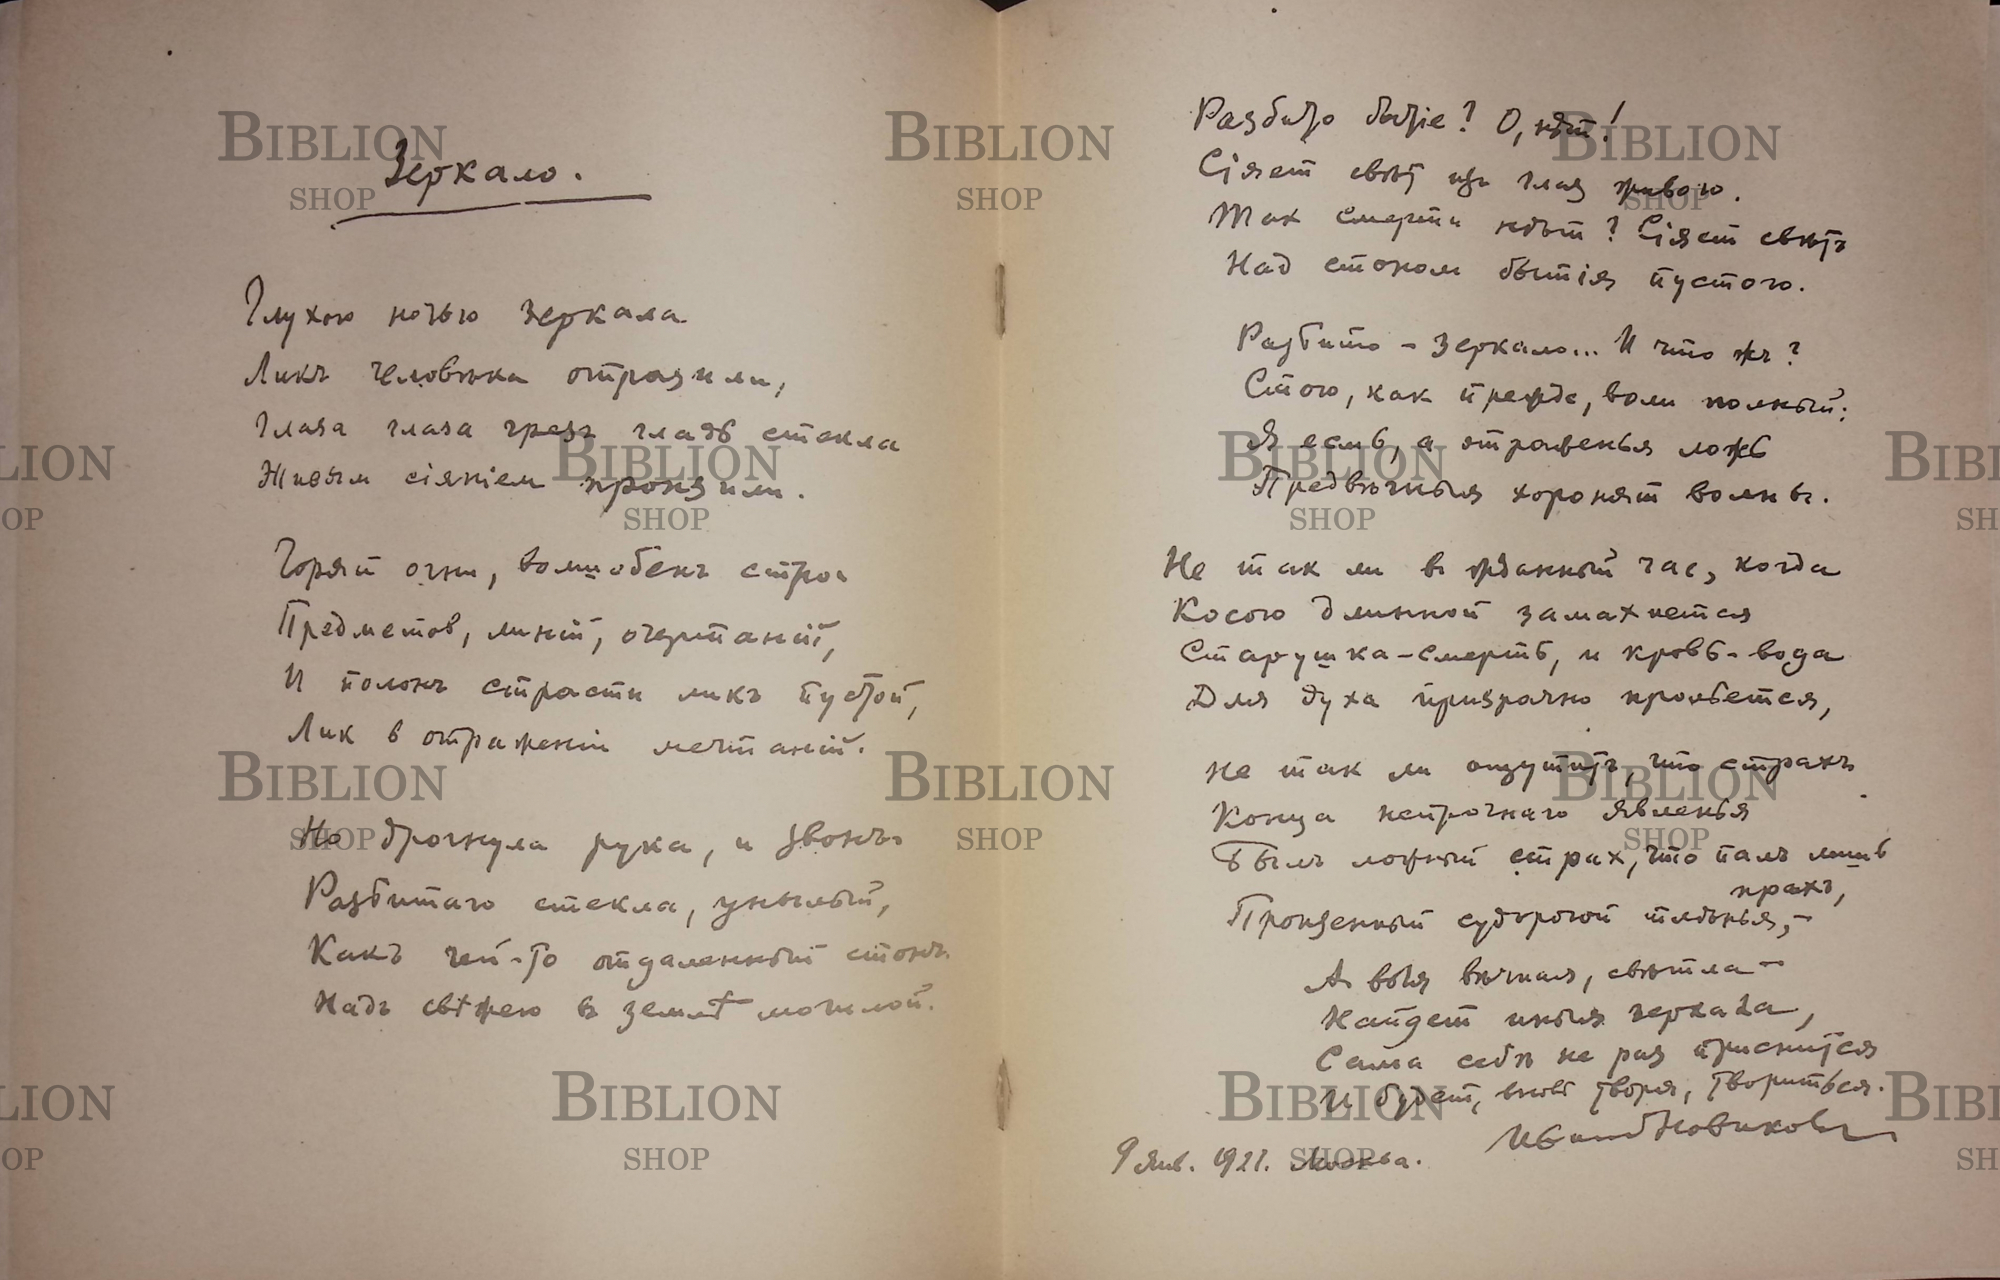 Зеркало.
Глухою ночью зеркала
Ликъ человѣка отразили,
Глаза глаза чрезъ гладь стекла
Живым сіяніем пронзили.
Горят огни, волшебенъ строй
Предметов, линій, очертаній,
И полонъ страсти ликъ пустой,
Лик в отраженіи мечтаній.
Но дрогнула рука, и звонъ
Разбитаго стекла, унылый,
Какъ чей-то отдаленный стонъ
Надъ свѣжею в землѣ могилой.
Разбито бытіе? О, нѣт!
Сіяет свѣт изъ глаз живою.
Так смерти нѣт? Сіяет свѣтъ
Над стоном бытія пустого.
Разбито - зеркало... И что жъ?
Стою, как прежде, воли полный:
Я есмь, а отраженья ложь
Предвѣчныя хоронят волны.
Не так ли в жданный час, когда
Косою длинной замахнется
Старушка-смерть, и кровь-вода
Для духа призрачно прольется,
Не так ли ощутитъ, что страхъ
Конца непрочнаго явленья
Былъ ложный страх, что палъ лишь
прахъ,
Пронзенный судорогой тлѣнья, -
А воля вѣчная, свѣтла -
Найдет иныя зеркала,
Сама себѣ не раз приснится
И будет, вновь творя, твориться.
Иван Новиковъ
9 янв. 1921. Москва.
BIBLION
SHOP